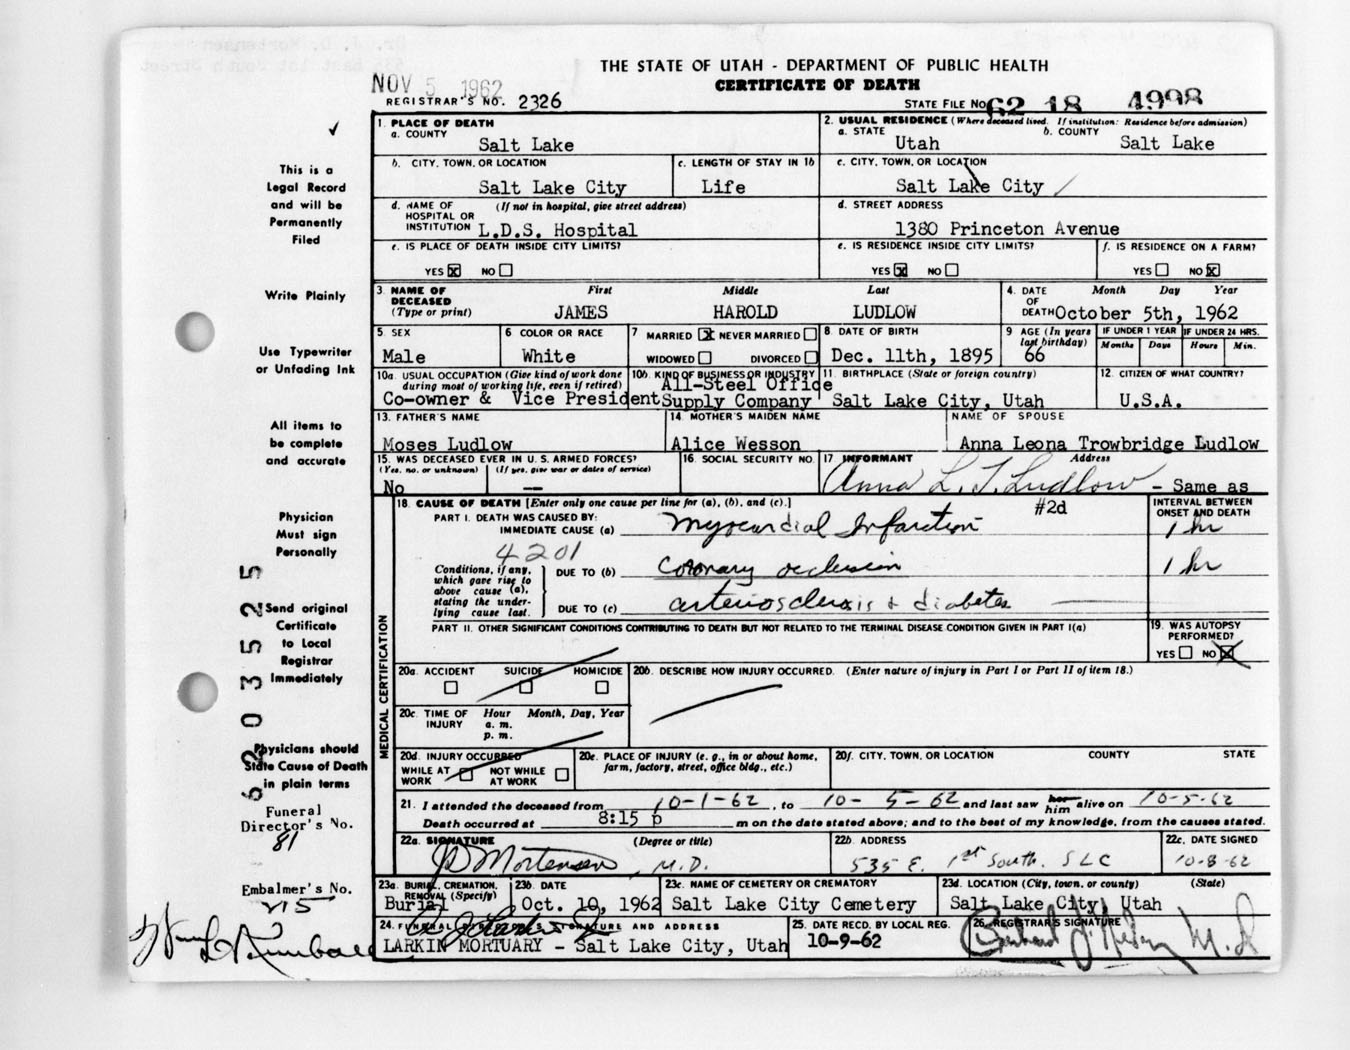 THE STATE OF UTAH - DEPARTMENT OF PUBLIC HEALTH
CERTIFICATE OF DEATH
NOV 5 1962
REGISTRAR'S NO. 2326
STATE FILE NO. 62 18 4998
This is a
Legal Record
and will be
Permanently
Filed
Write Plainly
Use Typewriter
or Unfading Ink
All items to
be complete
and accurate
Physician
Must sign
Personally
Send original
Certificate
to Local
Registrar
Immediately
Physicians should
State Cause of Death
in plain terms
Funeral
Director's No.
81
Embalmer's No.
215
62 035525
1. PLACE OF DEATH
a. COUNTY
Salt Lake
2. USUAL RESIDENCE (Where deceased lived. If institution: Residence before admission)
a. STATE
Utah
b. COUNTY
Salt Lake
b. CITY, TOWN, OR LOCATION
Salt Lake City
c. LENGTH OF STAY IN 1b
Life
c. CITY, TOWN, OR LOCATION
Salt Lake City
d. NAME OF (If not in hospital, give street address)
HOSPITAL OR
INSTITUTION L.D.S. Hospital
d. STREET ADDRESS
1380 Princeton Avenue
e. IS PLACE OF DEATH INSIDE CITY LIMITS?
YES X NO
e. IS RESIDENCE INSIDE CITY LIMITS?
YES X NO
f. IS RESIDENCE ON A FARM?
YES NO X
3. NAME OF First Middle Last
DECEASED
(Type or print) JAMES HAROLD LUDLOW
4. DATE Month Day Year
OF
DEATH October 5th, 1962
5. SEX
Male
6 COLOR OR RACE
White
7 MARRIED X NEVER MARRIED
WIDOWED DIVORCED
8 DATE OF BIRTH
Dec. 11th, 1895
9 AGE (In years
last birthday)
66
IF UNDER 1 YEAR IF UNDER 24 HRS.
Months Days Hours Min.
10a. USUAL OCCUPATION (Give kind of work done
during most of working life, even if retired)
Co-owner & Vice President
10b. KIND OF BUSINESS OR INDUSTRY
All-Steel Office
Supply Company
11. BIRTHPLACE (State or foreign country)
Salt Lake City, Utah
12. CITIZEN OF WHAT COUNTRY?
U.S.A.
13. FATHER'S NAME
Moses Ludlow
14. MOTHER'S MAIDEN NAME
Alice Wesson
NAME OF SPOUSE
Anna Leona Trowbridge Ludlow
15. WAS DECEASED EVER IN U. S. ARMED FORCES?
(Yes, no, or unknown) (If yes, give war or dates of service)
No --
16. SOCIAL SECURITY NO.
17. INFORMANT Address
Anna L. T. Ludlow - Same as
#2d
18. CAUSE OF DEATH [Enter only one cause per line for (a), (b), and (c).]
INTERVAL BETWEEN
ONSET AND DEATH
PART I. DEATH WAS CAUSED BY:
IMMEDIATE CAUSE (a) Myocardial Infarction 1 hr
4201
Conditions, if any,
which gave rise to
above cause (a),
stating the under-
lying cause last.
DUE TO (b) coronary occlusion 1 hr
DUE TO (c) arteriosclerosis + diabetes
PART II. OTHER SIGNIFICANT CONDITIONS CONTRIBUTING TO DEATH BUT NOT RELATED TO THE TERMINAL DISEASE CONDITION GIVEN IN PART I(a)
19. WAS AUTOPSY
PERFORMED?
YES NO X
MEDICAL CERTIFICATION
20a. ACCIDENT SUICIDE HOMICIDE
20b. DESCRIBE HOW INJURY OCCURRED. (Enter nature of injury in Part I or Part II of item 18.)
20c. TIME OF Hour Month, Day, Year
INJURY a. m.
p. m.
20d. INJURY OCCURRED
WHILE AT NOT WHILE
WORK AT WORK
20e. PLACE OF INJURY (e. g., in or about home,
farm, factory, street, office bldg., etc.)
20f. CITY, TOWN, OR LOCATION COUNTY STATE
21. I attended the deceased from 10-1-62, to 10-5-62 and last saw her him alive on 10-5-62
Death occurred at 8:15 p m on the date stated above; and to the best of my knowledge, from the causes stated.
22a. SIGNATURE (Degree or title)
J D Mortensen, M.D.
22b. ADDRESS
535 E. 1st South. SLC
22c. DATE SIGNED
10-8-62
23a. BURIAL, CREMATION,
REMOVAL (Specify)
Burial
23b. DATE
Oct. 10, 1962
23c. NAME OF CEMETERY OR CREMATORY
Salt Lake City Cemetery
23d. LOCATION (City, town, or county) (State)
Salt Lake City, Utah
24. FUNERAL DIRECTOR'S SIGNATURE AND ADDRESS
LARKIN MORTUARY - Salt Lake City, Utah
25. DATE RECD. BY LOCAL REG.
10-9-62
26. REGISTRAR'S SIGNATURE
M. D